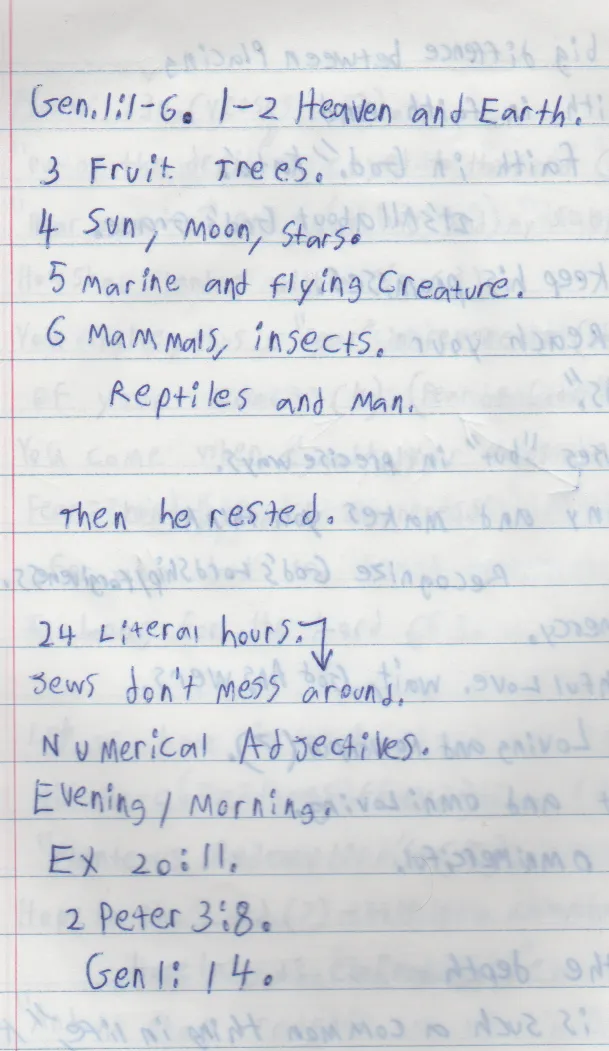 Gen.1:1-6. 1-2 Heaven and Earth.
3 Fruit Trees.
4 Sun, Moon, Stars.
5 Marine and flying Creature.
6 Mammals, insects.
Reptiles and Man.
Then he rested.
24 Literal hours.
Jews don't mess around.
Numerical Adjectives.
Evening/Morning.
Ex 20:11.
2 Peter 3:8.
Gen 1:14.